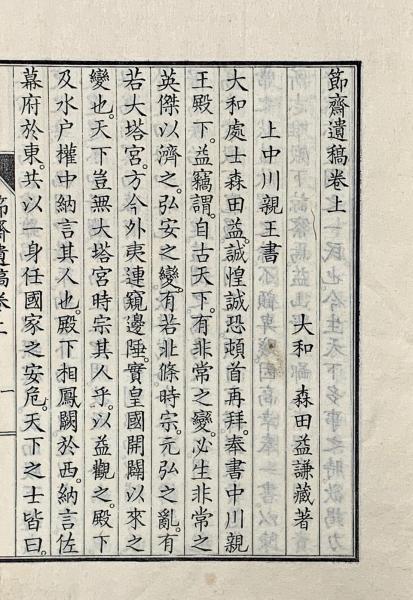 節齋遺稿卷上
大和 森田益謙藏著
上中川親王書
大和處士森田益。誠惶誠恐頓首再拜。奉書中川親
王殿下。益竊謂。自古天下。有非常之變。必生非常之
英傑以濟之。弘安之變。有若北條時宗。元弘之亂。有
若大塔宮。方今外夷連窺邊陲。實皇國開闢以來之
變也。天下豈無大塔宮時宗其人乎。以益觀之。殿下
及水户權中納言其人也。殿下相鳳闕於西。納言佐
幕府於東。共以一身任國家之安危。天下之士皆曰。
節齋遺稿卷上
一